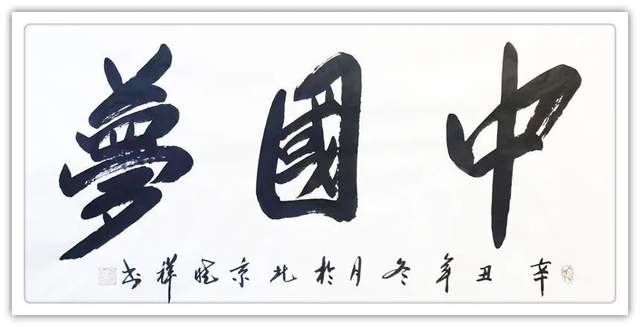 中國夢
辛丑年冬月於北京晓祥书